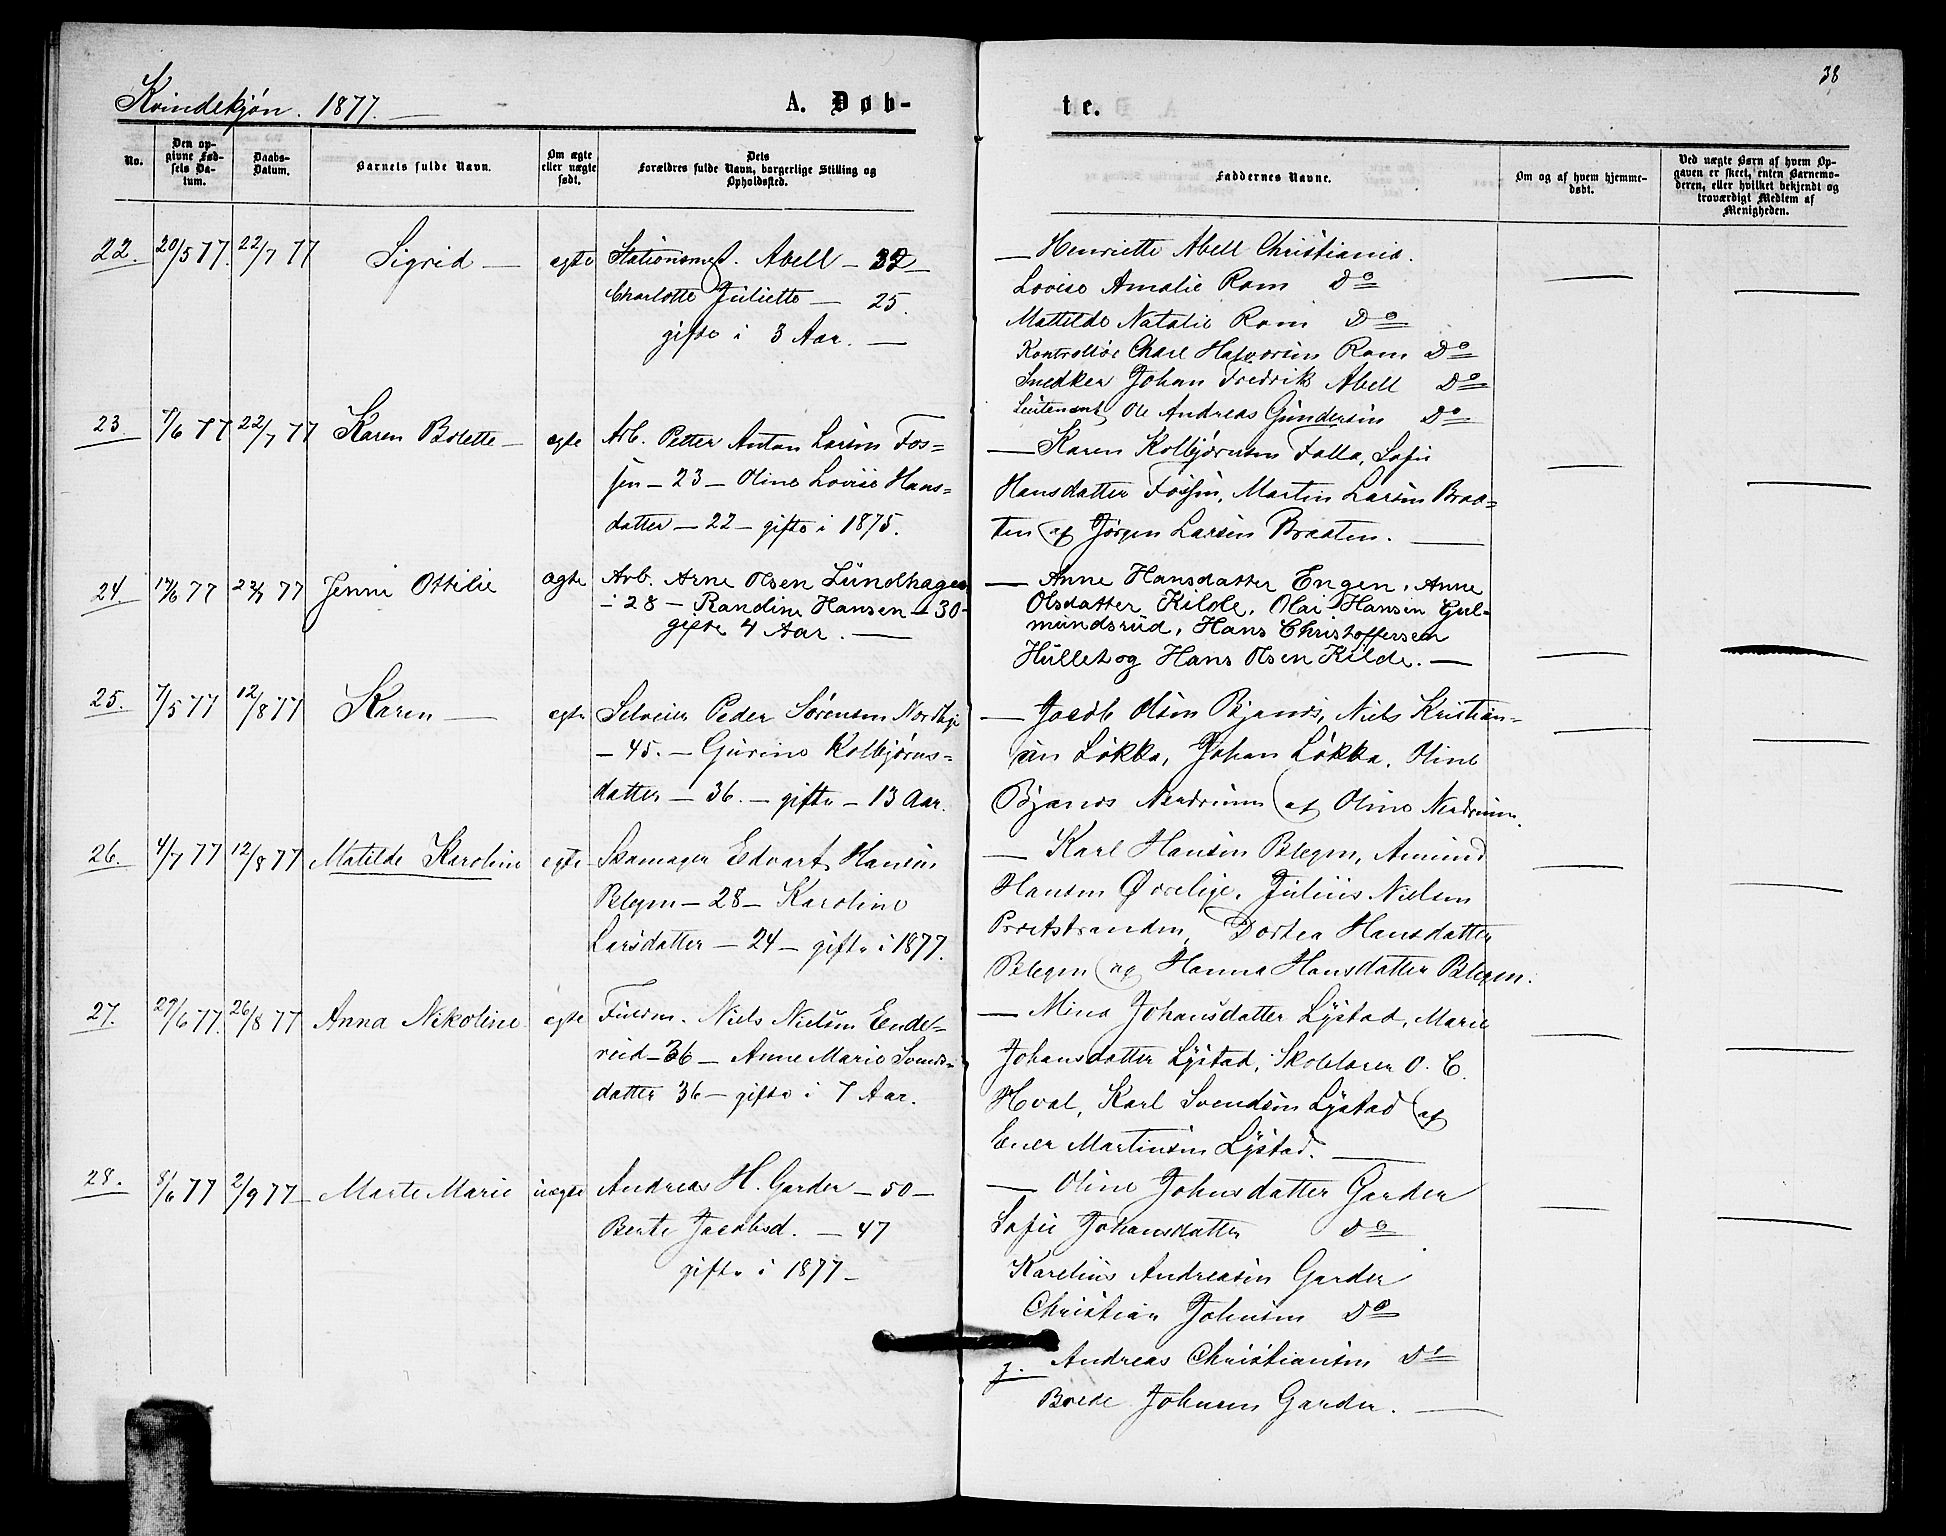 38
Kvindekjøn. 1877.
A. Døb-
te.
No.
Den opgivne Fødsels Datum.
Daabs-Datum.
Barnets fulde Navn.
Om ægte eller uægte født.
Dets Forældres fulde Navn, borgerlige Stilling og Opholdssted.
Faddernes Navne.
Om og af hvem hjemmedøbt.
Ved uægte Børn af hvem Opgaven er skeet, enten Barnemoderen, eller hvilket bekjendt og troværdigt Medlem af Menigheden.
22. 20/5 77. 22/7 77 Sigrid — ægte
Stationsmest. Abell — 32 —
Charlotte Juliette — 25.
gifte i 3 Aar. —
— Henriette Abell Christiania.
Lovise Amalie Rom Do
Mathilde Natalie Rom Do
Kontrollør Charl Halvorsen Rom Do
Snedker Johan Fredrik Abell Do
Lieutenant Ole Andreas Gundersen Do
23. 9/6 77 22/7 77 Karen Bolette — ægte
Arb. Petter Anton Larsen Fos=
sen — 23 — Oline Lovise Hans=
datter — 22 — gifte i 1875.
— Karen Kolbjørnsen Falla, Sofie
Hansdatter Fossen, Martin Larsen Braa=
ten og Jørgen Larsen Braaten. —
24. 17/6 77 22/7 77 Jenni Ottilie ægte
Arb. Arne Olsen Lundhagen
- 28 — Randine Hansen — 30 -
gifte 4 Aar. —
— Anne Hansdatter Engen, Anne
Olsdatter Kilde, Olai Hansen Gul-
mundsrud, Hans Christoffersen
Hullet og Hans Olsen Kilde. —
25. 7/5 77 12/8 77 Karen — ægte
Selveier Peder Sørensen Nordbye
— 45. — Gurine Kolbjørns=
datter — 36. — gifte — 13 Aar.
— Jacob Olsen Bjanes, Niels Kristian=
sen Løkka, Johan Løkka, Oline
Bjanes Nerdrum og Oline Nerdrum.
26. 4/7 77 12/8 77 Matilde Karoline ægte
Skomager Edvart Hansen
Blegen — 28 — Karoline
Larsdatter — 24 — gifte i 1877.
— Karl Hansen Blegen, Amund
Hansen Julius Nielsen
Dortea Hansdatter
Blegen og Hanna Hansdatter Blegen.
27. 27/6 77. 26/8 77 Anna Nikoline ægte
Niels Nielsen Ende=
rud — 36 — Anne Marie Svends=
datter 36 — gifte i 7 Aar.
— Mina Johansdatter Lystad, Marie
Johansdatter Lystad, Skolelærer O. C.
Hval, Karl Svendsen Lystad og
Ener Martinsen Lystad. —
28. 8/6 77 2/9 77 — Marte Marie uægte
Andreas H. Garder — 50 —
Berte Jacobsd. — 47
gifte i 1877 —
— Oline Johnsdatter Garder
Sofie Johansdatter Do
Karelius Andreasen Garder
Christian Johnsen Do
Andreas Christiansen Do
Brede Johnsen Garder. —